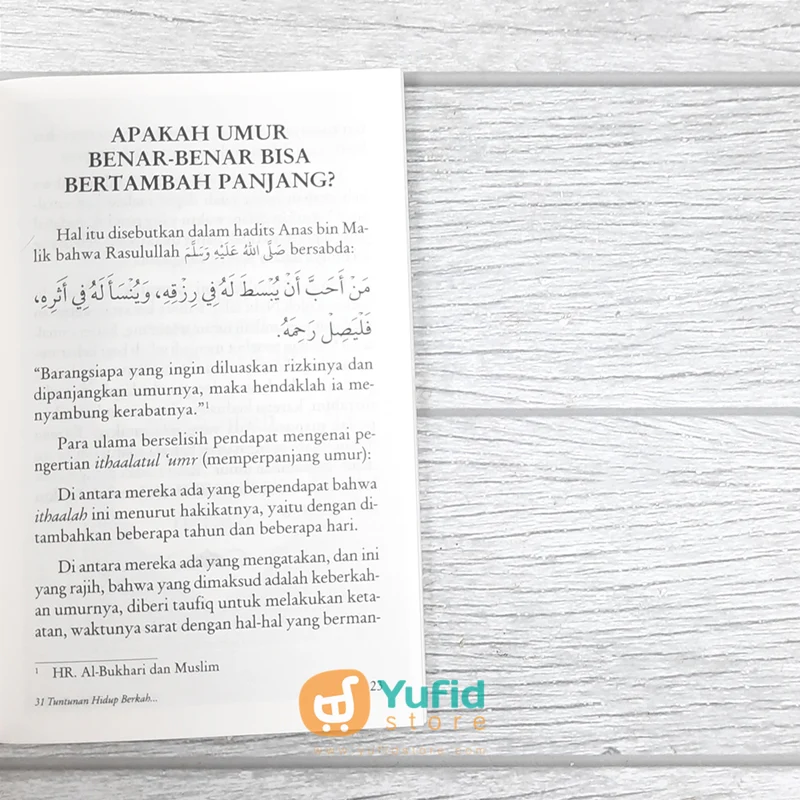 APAKAH UMUR
BENAR-BENAR BISA
BERTAMBAH PANJANG?
Hal itu disebutkan dalam hadits Anas bin Ma-
lik bahwa Rasulullah صَلَّى اللهُ عَلَيْهِ وَسَلَّمَ bersabda:
مَنْ أَحَبَّ أَنْ يُبْسَطَ لَهُ فِي رِزْقِهِ، وَيُنْسَأَ لَهُ فِي أَثَرِهِ،
فَلْيَصِلْ رَحِمَهُ.
“Barangsiapa yang ingin diluaskan rizkinya dan
dipanjangkan umurnya, maka hendaklah ia me-
nyambung kerabatnya.”¹
Para ulama berselisih pendapat mengenai pe-
ngertian ithaalatul ‘umr (memperpanjang umur):
Di antara mereka ada yang berpendapat bahwa
ithaalah ini menurut hakikatnya, yaitu dengan di-
tambahkan beberapa tahun dan beberapa hari.
Di antara mereka ada yang mengatakan, dan ini
yang rajih, bahwa yang dimaksud adalah keberkah-
an umurnya, diberi taufiq untuk melakukan keta-
atan, waktunya sarat dengan hal-hal yang berman-
¹ HR. Al-Bukhari dan Muslim
31 Tuntunan Hidup Berkah...
Yufid
store